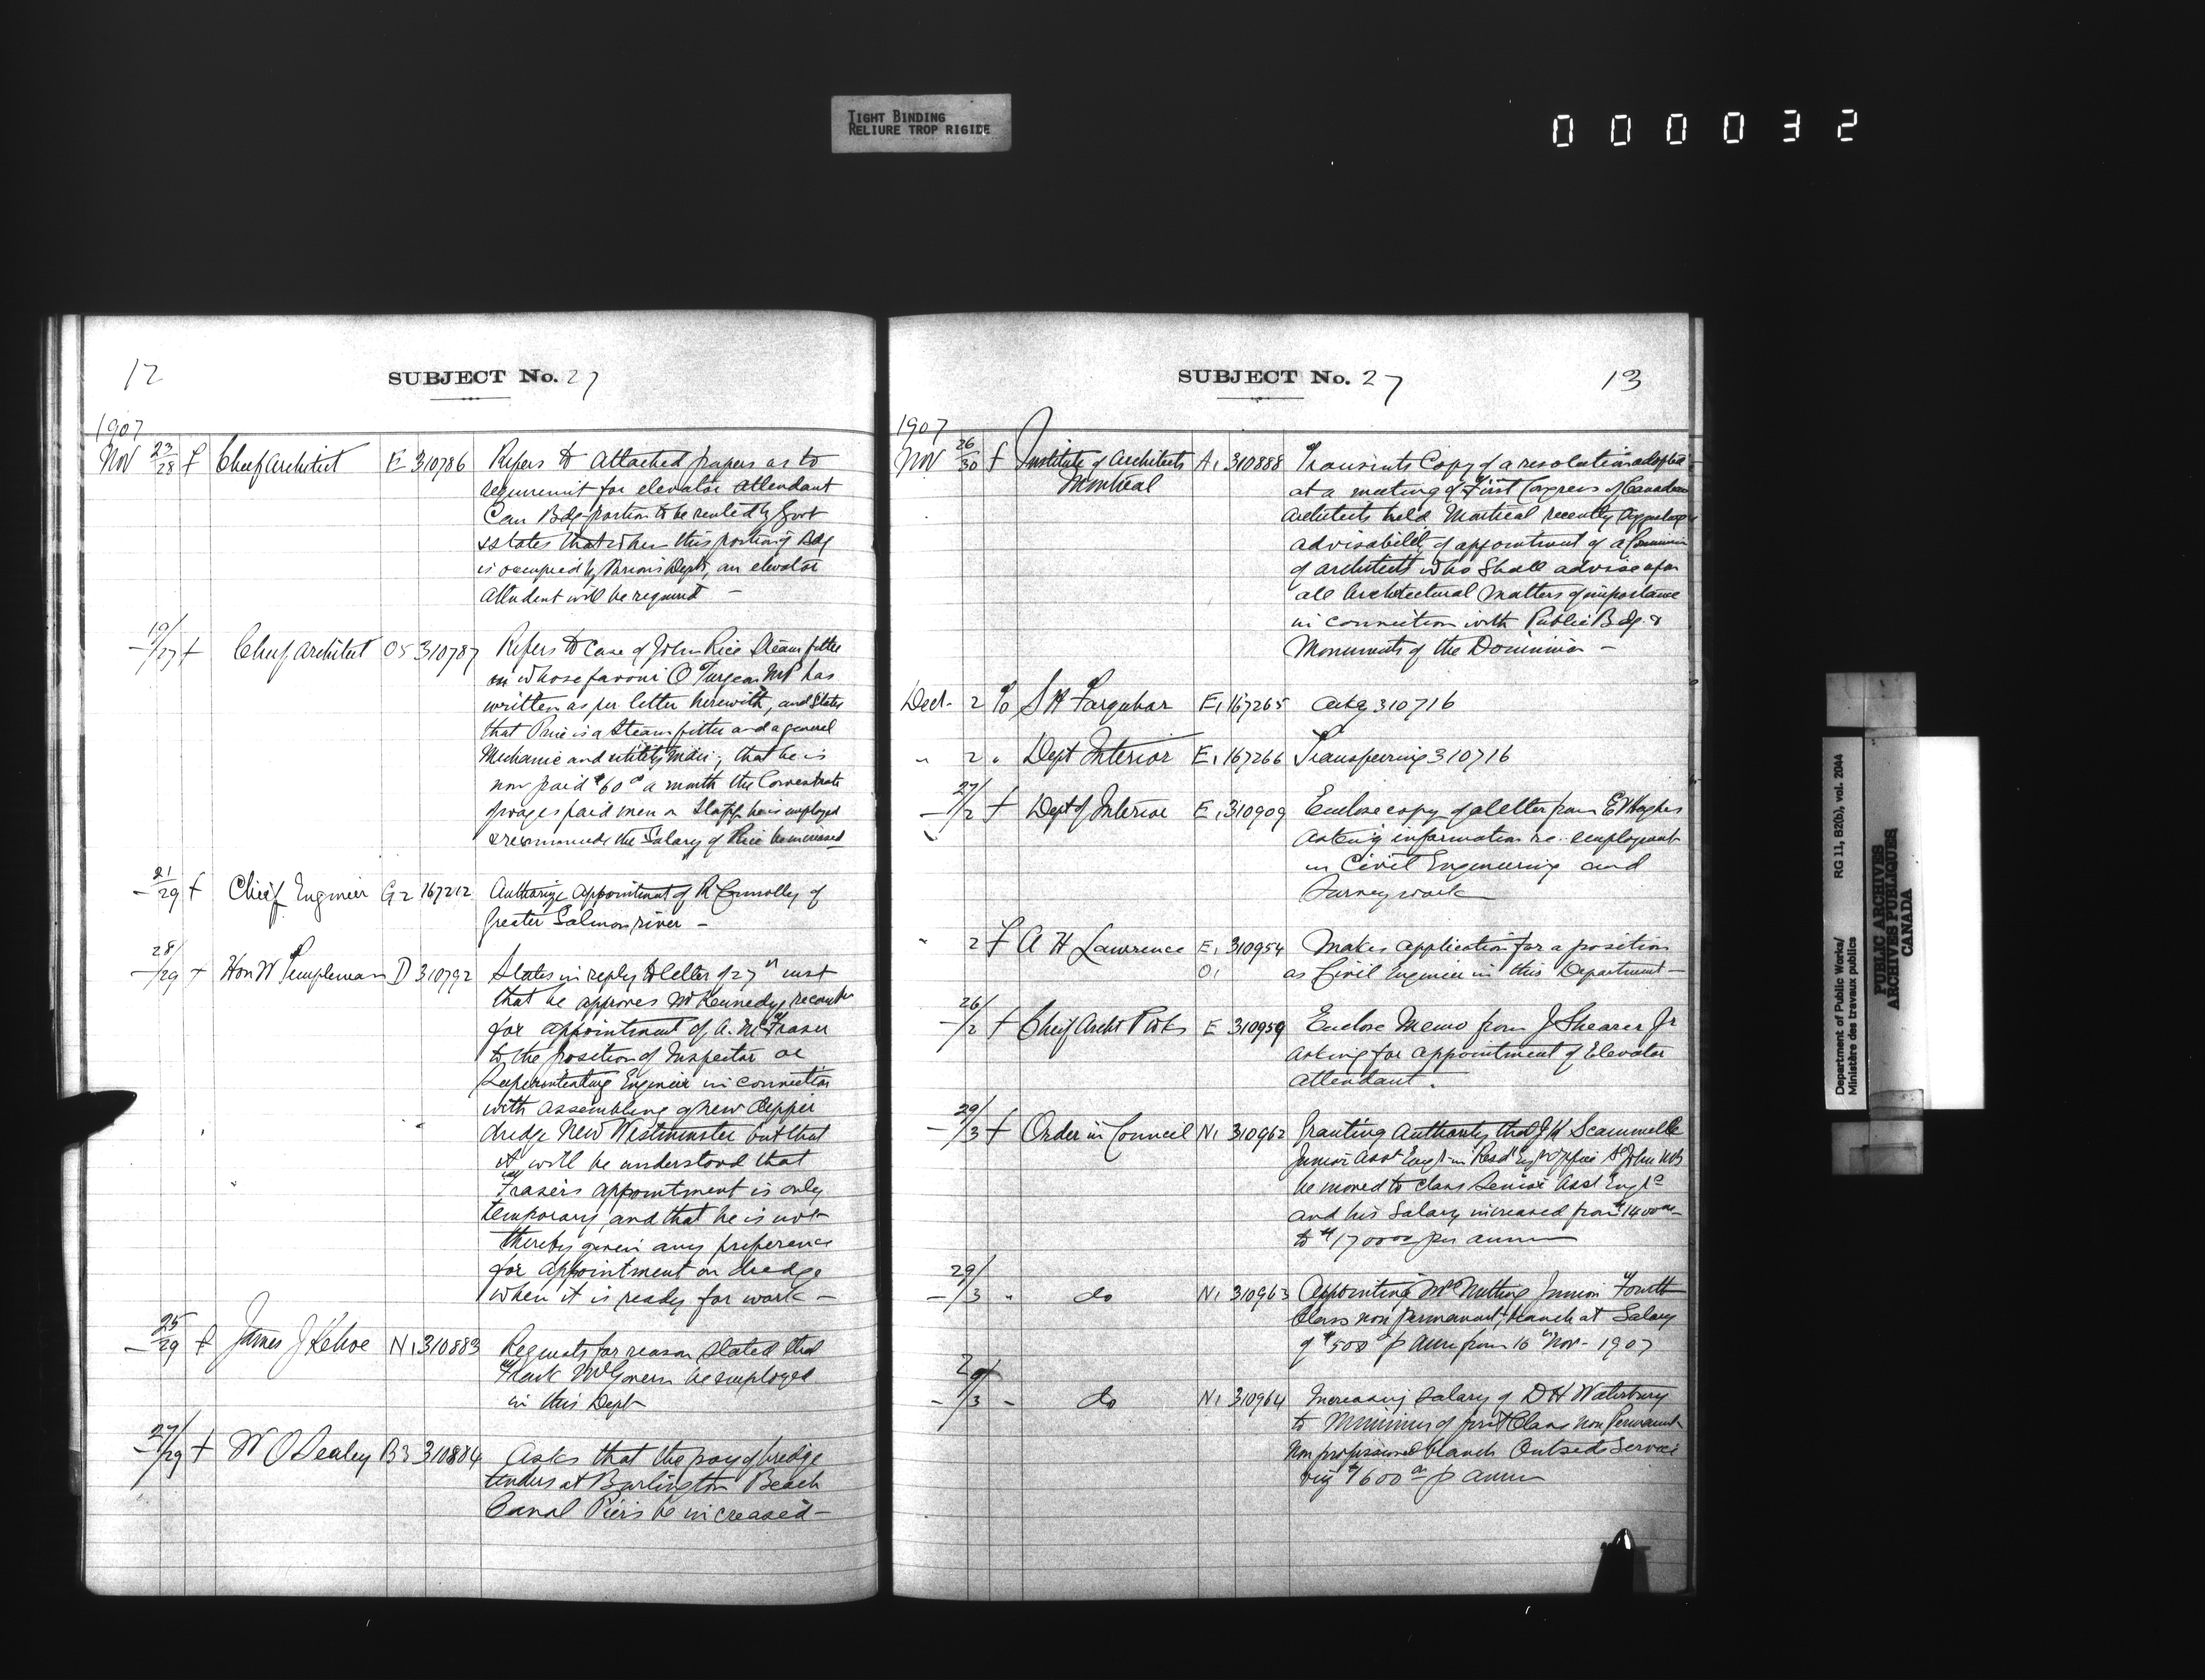 TIGHT BINDING
RELIURE TROP RIGIDE
000032
12
SUBJECT No. 27
1907
Nov 23/28 f Chief Architect E 310786 Refers to attached papers as to
requirement for elevator attendant
Can Bdg portion to be rented by Govt
& states that when this portion of Bdg
is occupied by Various Depts, an elevator
attendent will be required —
19/27 f Chief Architect O5 310787 Refers to case of John Rice Steam fitter
in whose favour O Turgeon MP has
written as per letter herewith, and states
that Rice is a Steam fitter and a general
Mechanic and utility man; that he is
now paid $60 a month the
of wages paid men on Staff he is employed
& recommends the Salary of Rice be increased
21/29 f Chief Engineer G2 167212 Authorize appointment of R Connolly of
Greater Salmon river —
28/29 f Hon W Templeman D 310792 States in reply to letter of 27th inst
that he approves Mr Kennedy's
for appointment of A. McFraser
to the position of Inspector or
Superintending Engineer in connection
with assembling of new dipper
dredge New Westminster but that
it will be understood that
Fraser's appointment is only
temporary, and that he is not
thereby given any preference
for appointment on dredge
when it is ready for work —
25/29 f James J Kehoe N1 310883 Requests for reason stated that
Frank McGovern be employed
in this Dept
27/29 f W O Sealey B3 310884 Asks that the pay of bridge
tenders at Burlington Beach
Canal Piers be increased —
SUBJECT No. 27
13
1907
Nov 26/30 f Institute of Architects A1 310888 Transmits Copy of a resolution adopted
Montreal at a meeting of First Congress of Canadian
Architects held Montreal recently
advisability of appointment of a
of architects who shall advise upon
all Architectural Matters of importance
in connection with Public Bdgs &
Monuments of the Dominion —
Dec 2 To S H Farquhar E1 167265 Ackg 310716
" 2 " Dept Interior E1 167266 Transferring 310716
27/2 f Dept of Interior E1 310909 Enclose copy of a letter from E V Hughes
asking information re employment
in Civil Engineering and
Survey work
" 2 f A H Lawrence E1 310954 Makes application for a position
O1 as Civil Engineer in this Department —
26/2 f Chief Archt P Wks E 310959 Enclose Memo from J Shearer Jr
asking for appointment of Elevator
attendant.
29/3 f Order in Council N1 310962 Granting Authority that J K Scammell
Junior Asst Engr in Resdt Engr Office St John NB
be moved to class Senior Asst Engr
and his Salary increased from $1400.00
to $1700.00 per annum
29/3 " do N1 310963 Appointing McNutting Junior Fourth
Class non permanent, branch at Salary
of $500 p annm from 16th Nov - 1907
29/3 " do N1 310964 Increasing salary of D H Waterbury
to Minimum of first Class non Permanent
Non professional branch Outside Service
viz $1600.00 p annm
Department of Public Works/
Ministère des travaux publics
RG 11, B2(b), vol. 2044
PUBLIC ARCHIVES
ARCHIVES PUBLIQUES
CANADA